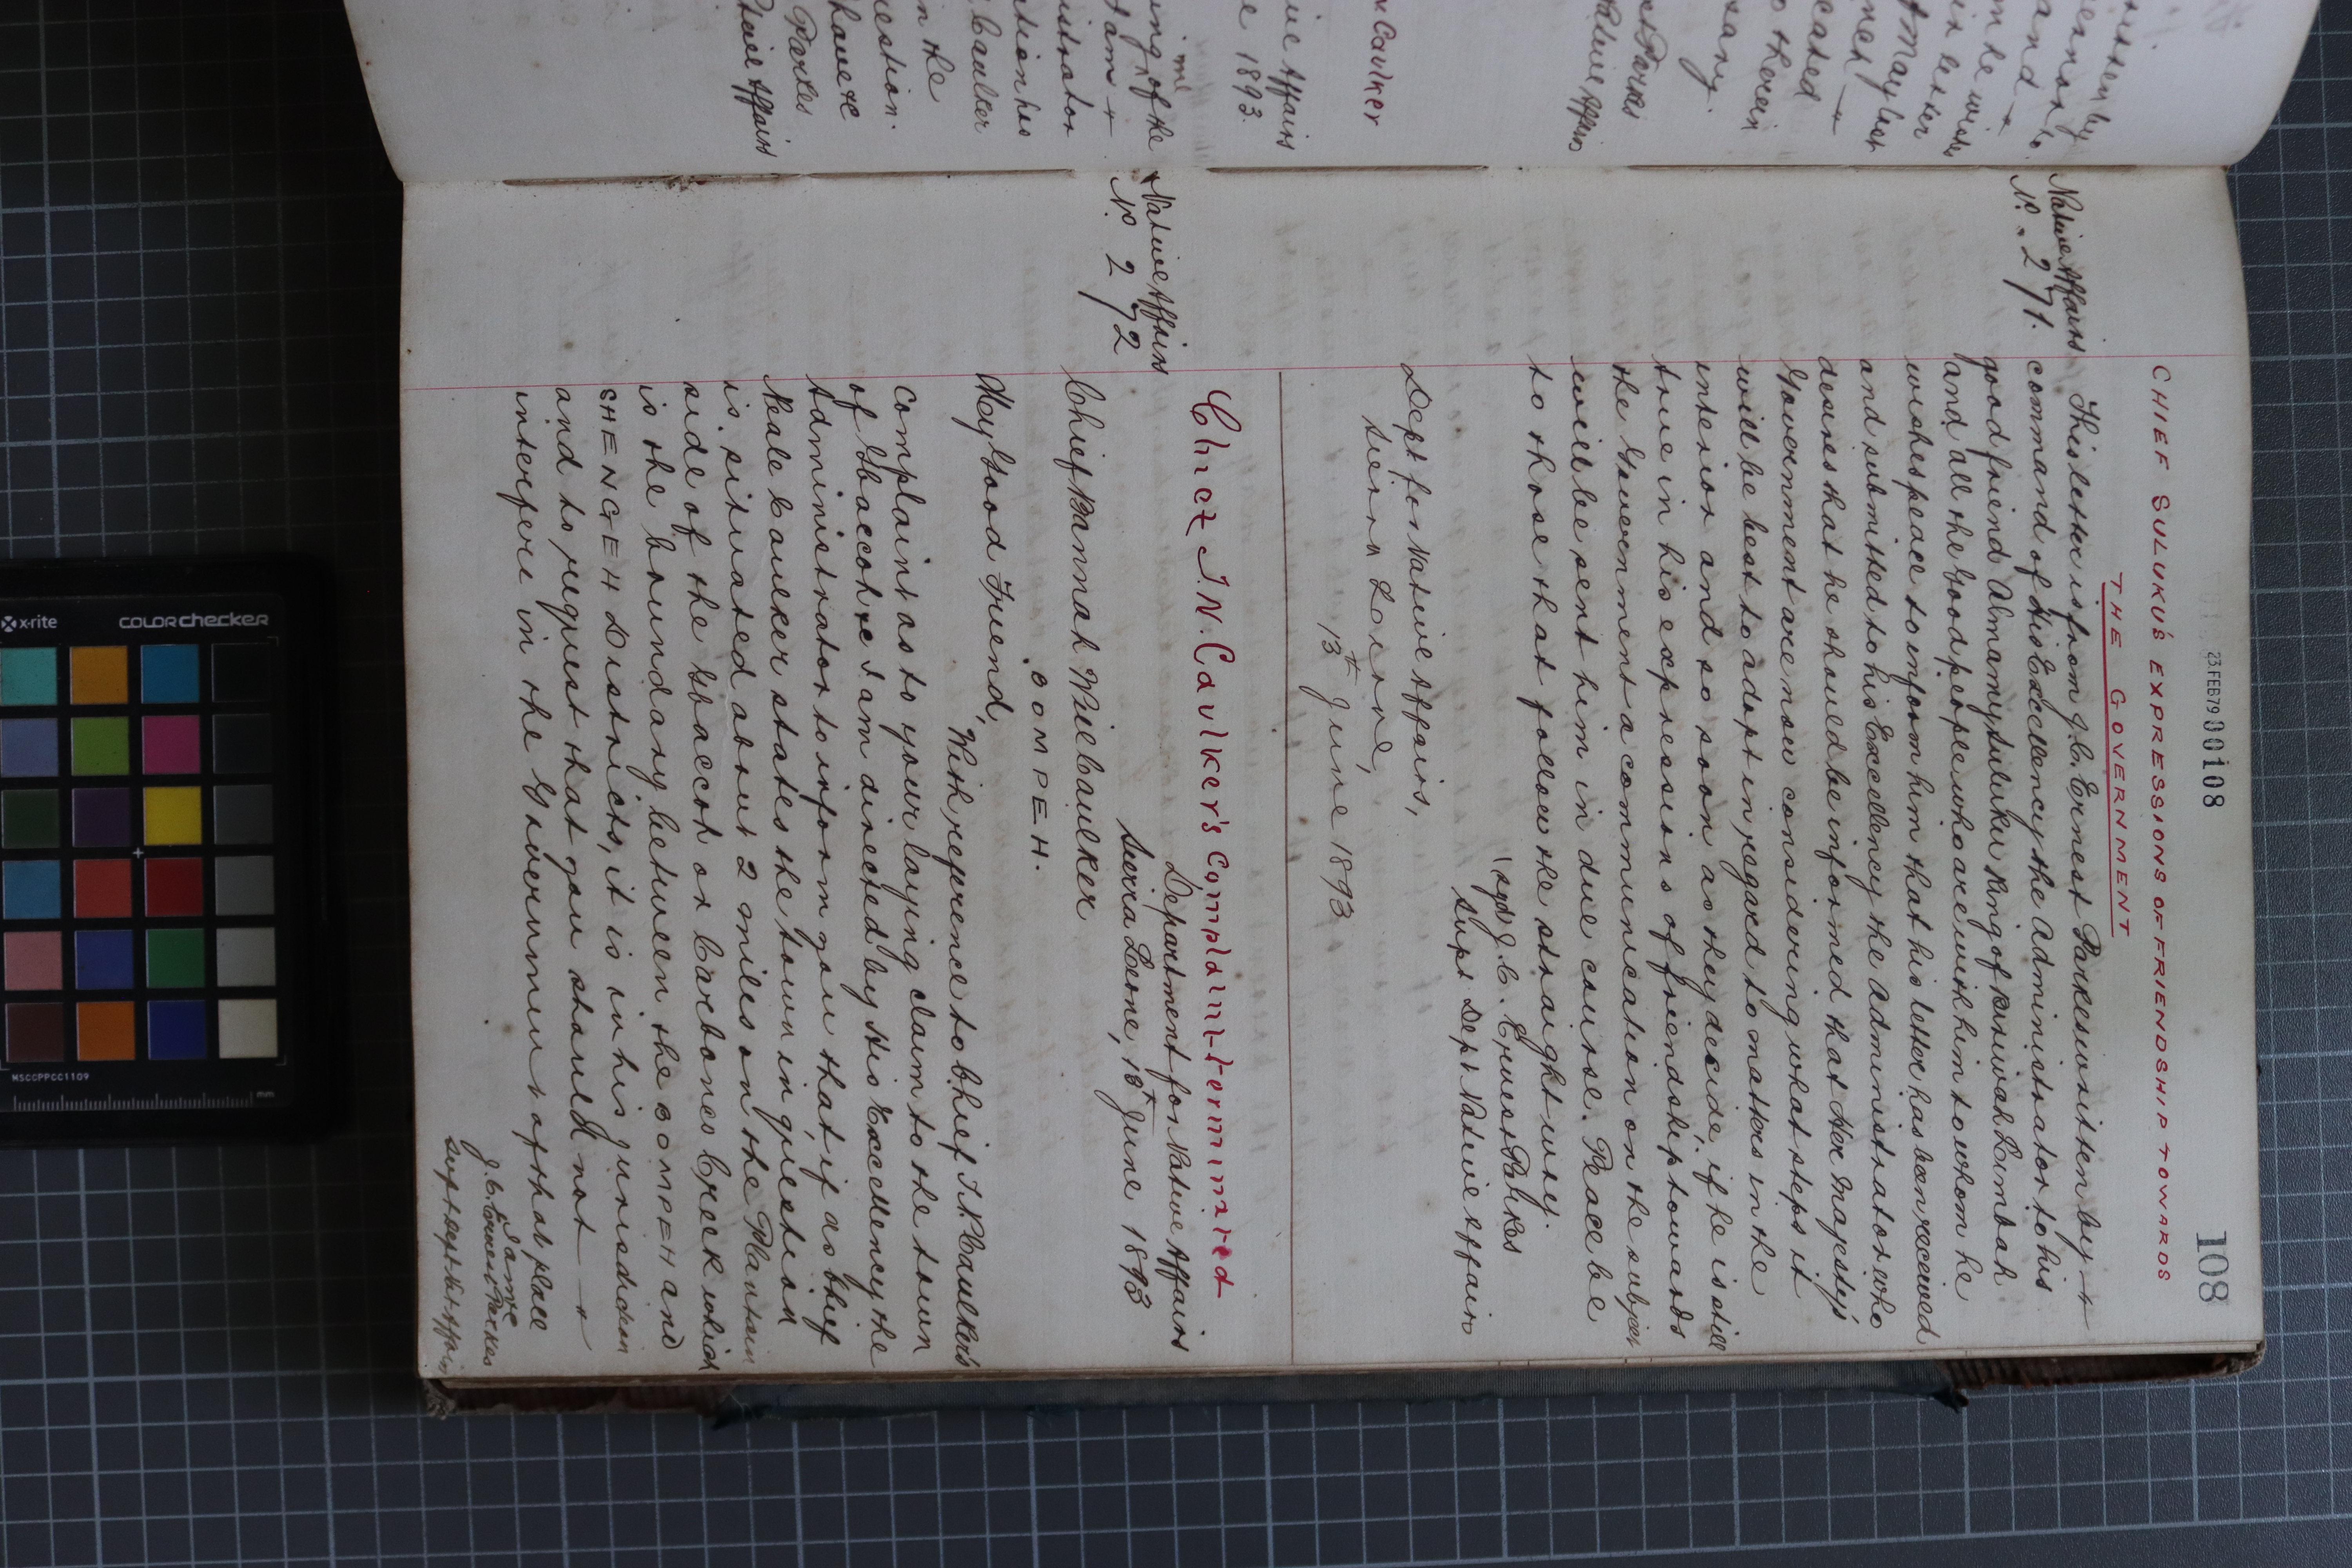 23 FEB 79 00108
108
CHIEF SULUKU'S EXPRESSIONS OF FRIENDSHIP TOWARDS
THE GOVERNMENT
Native Affairs
No. 271.
This letter is from J.C. Ernest Parkes written by
command of His Excellency the Administrator to his
good friend Almamy Suluku King of Konivah Limbah
and all the Good people who are with him to whom he
wishes peace to inform him that his letter has been received
and submitted to his Excellency the Administrator who
desires that he should be informed that Her Majesty's
Government are now considering what steps it
will be best to adopt in regard to matters in the
interior and so soon as they decide, if he is still
true in his expressions of friendship towards
the Government a communication on the subject
will be sent him in due course. Peace be
to those that follow the straight way.
(sgd) J.C. Ernest Parkes
Supt Dept Native Affairs
Dept for Native Affairs,
Sierra Leone,
13th June 1893
Chief T.N. Caulker's Complaint determined
Native Affairs
No. 272
Department for Native Affairs
Sierra Leone, 18th June 1893
Chief Bannah Will Caulker
BOMPEH.
My Good Friend,
With reference to Chief T.N. Caulker's
complaint as to your laying claim to the town
of Gbaccoh &c I am directed by His Excellency the
Administrator to inform you that if as Chief
Neale Caulker states the town in question
is situated about 2 miles on the Plantain
side of the Gbaccoh or Carbones Creek which
is the boundary between the BOMPEH and
SHENGEH Districts, it is in his jurisdiction
and to request that you should not
interfere in the Government of that place
I am &c
J.C. Ernest Parkes
Supt Dept Nat Affairs
Caulker
Native Affairs
1893.